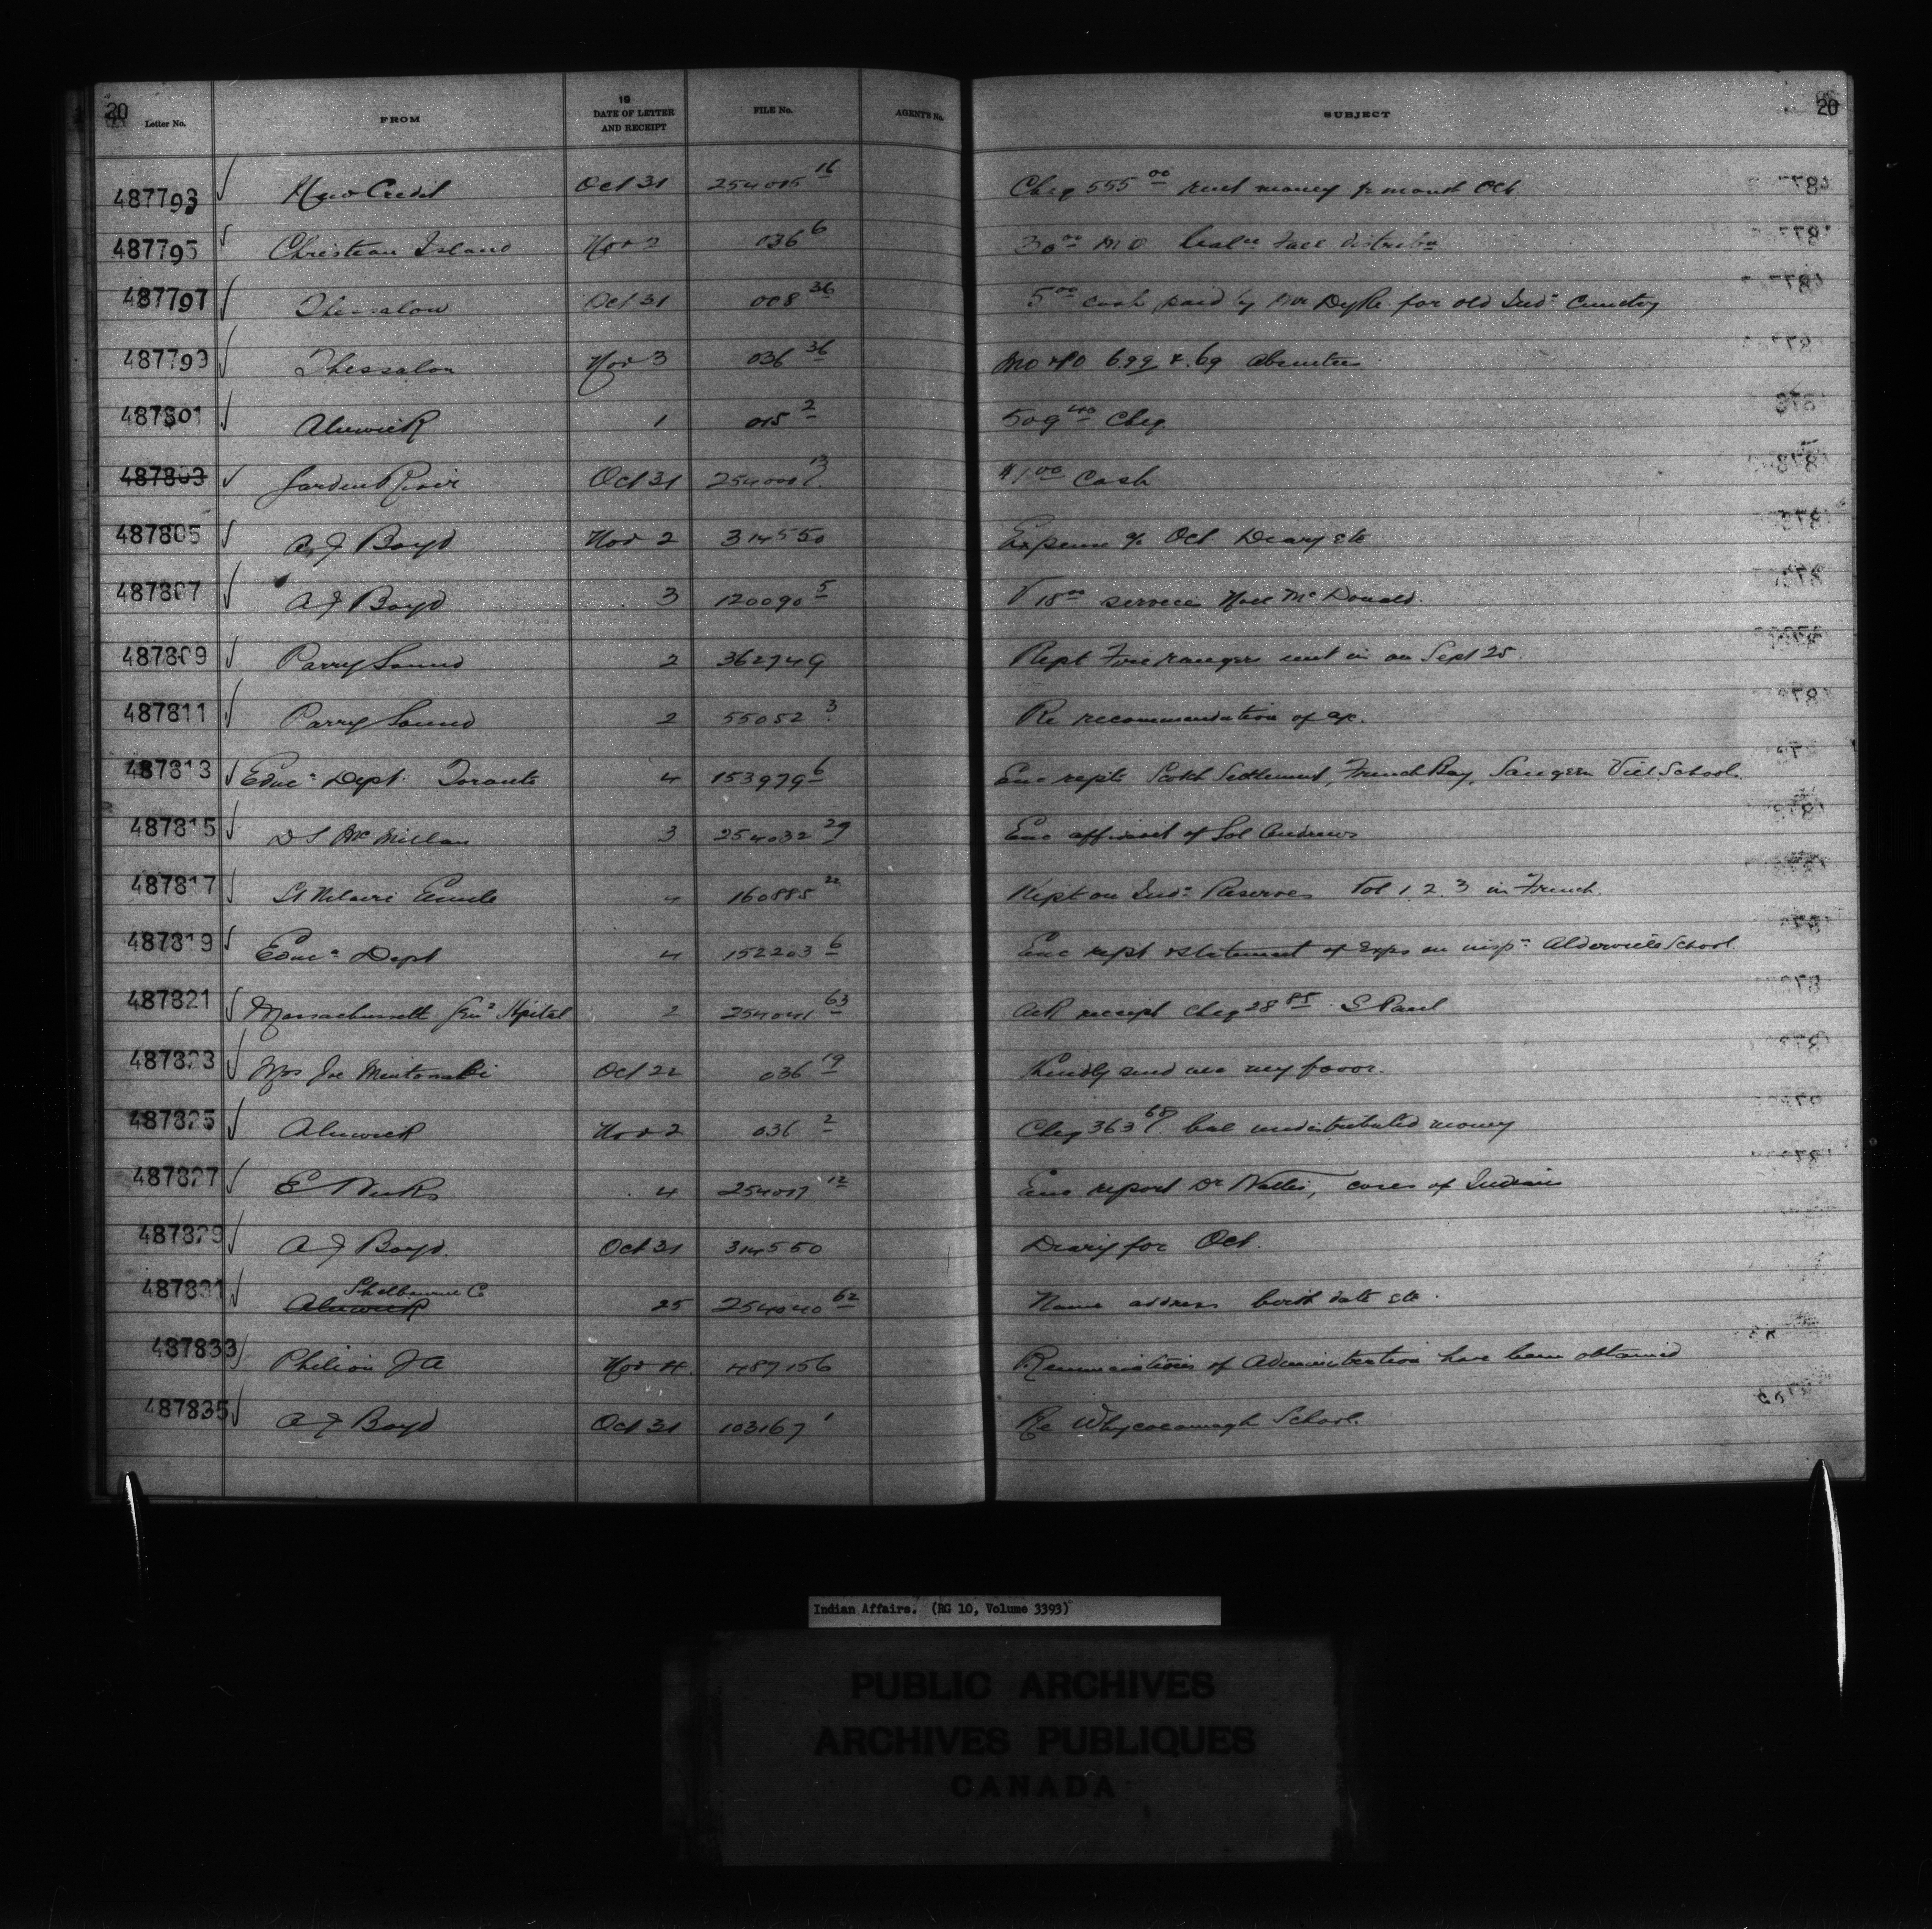 20 20
Letter No. FROM 19 DATE OF LETTER AND RECEIPT FILE No. AGENT'S No. SUBJECT
487793 √ New Credit Oct 31 254015 16 Cheq 555 00 rent money fr month Oct.
487795 √ Christian Island Nov 2 036 6 30 00 MO Fall distribn
487797 √ Thessalon Oct 31 008 36 5 00 cash paid by Mr Dyke for old Indn Cemetry
487799 √ Thessalon Nov 3 036 36 MO 6.99 & .69 Absentees
487801 √ Alnwick 1 015 2 509 40 Cheq.
487803 √ Garden River Oct 31 254000 13 $1 00 Cash
487805 √ A J Boyd Nov 2 314550 Expense % Oct. Diary etc
487807 √ A J Boyd 3 120090 5 √ 18 00 services Noel McDonald.
487809 √ Parry Sound 2 362749 Rept Fire rangers sent in on Sept 25.
487811 √ Parry Sound 2 55052 3 Re recommendation of
487813 √ Educn Dept. Toronto 4 153979 6 Enc repts Scotch Settlement, French Bay, Saugeen Vill. School.
487815 √ D S McMillan 3 254032 29 Enc affidavit of Sol Andrews
487817 √ St Hilaire Emile 4 160885 Rept on Indn Reserves Vol 1. 2. 3 in French.
487819 √ Educn Dept 4 152203 6 Enc rept & statement of exps on inspn Alderville School.
487821 √ Massachusett Genl Hspital 2 254041 63 Ack receipt Cheq 28 85 S Paul
487823 √ Mrs Joe Oct 22 036 19 Kindly send me my favor.
487825 √ Alnwick Nov 2 036 2 Cheq 363 68 bal undistributed money
487827 √ E 4 254017 12 Enc report Dr Wallis, cases of Indians
487829 √ A J Boyd. Oct 31 314550 Diary for Oct.
Shelburne Co
487831 √ Alnwick 25 254040 62 Name address birth date etc.
487833 √ Philion J A Nov 4. 487156 Renunciations of Administration have been obtained
487835 √ A J Boyd Oct 31 103167 1 Re Whycocomagh School.
Indian Affairs. (RG 10, Volume 3393)
PUBLIC ARCHIVES
ARCHIVES PUBLIQUES
CANADA